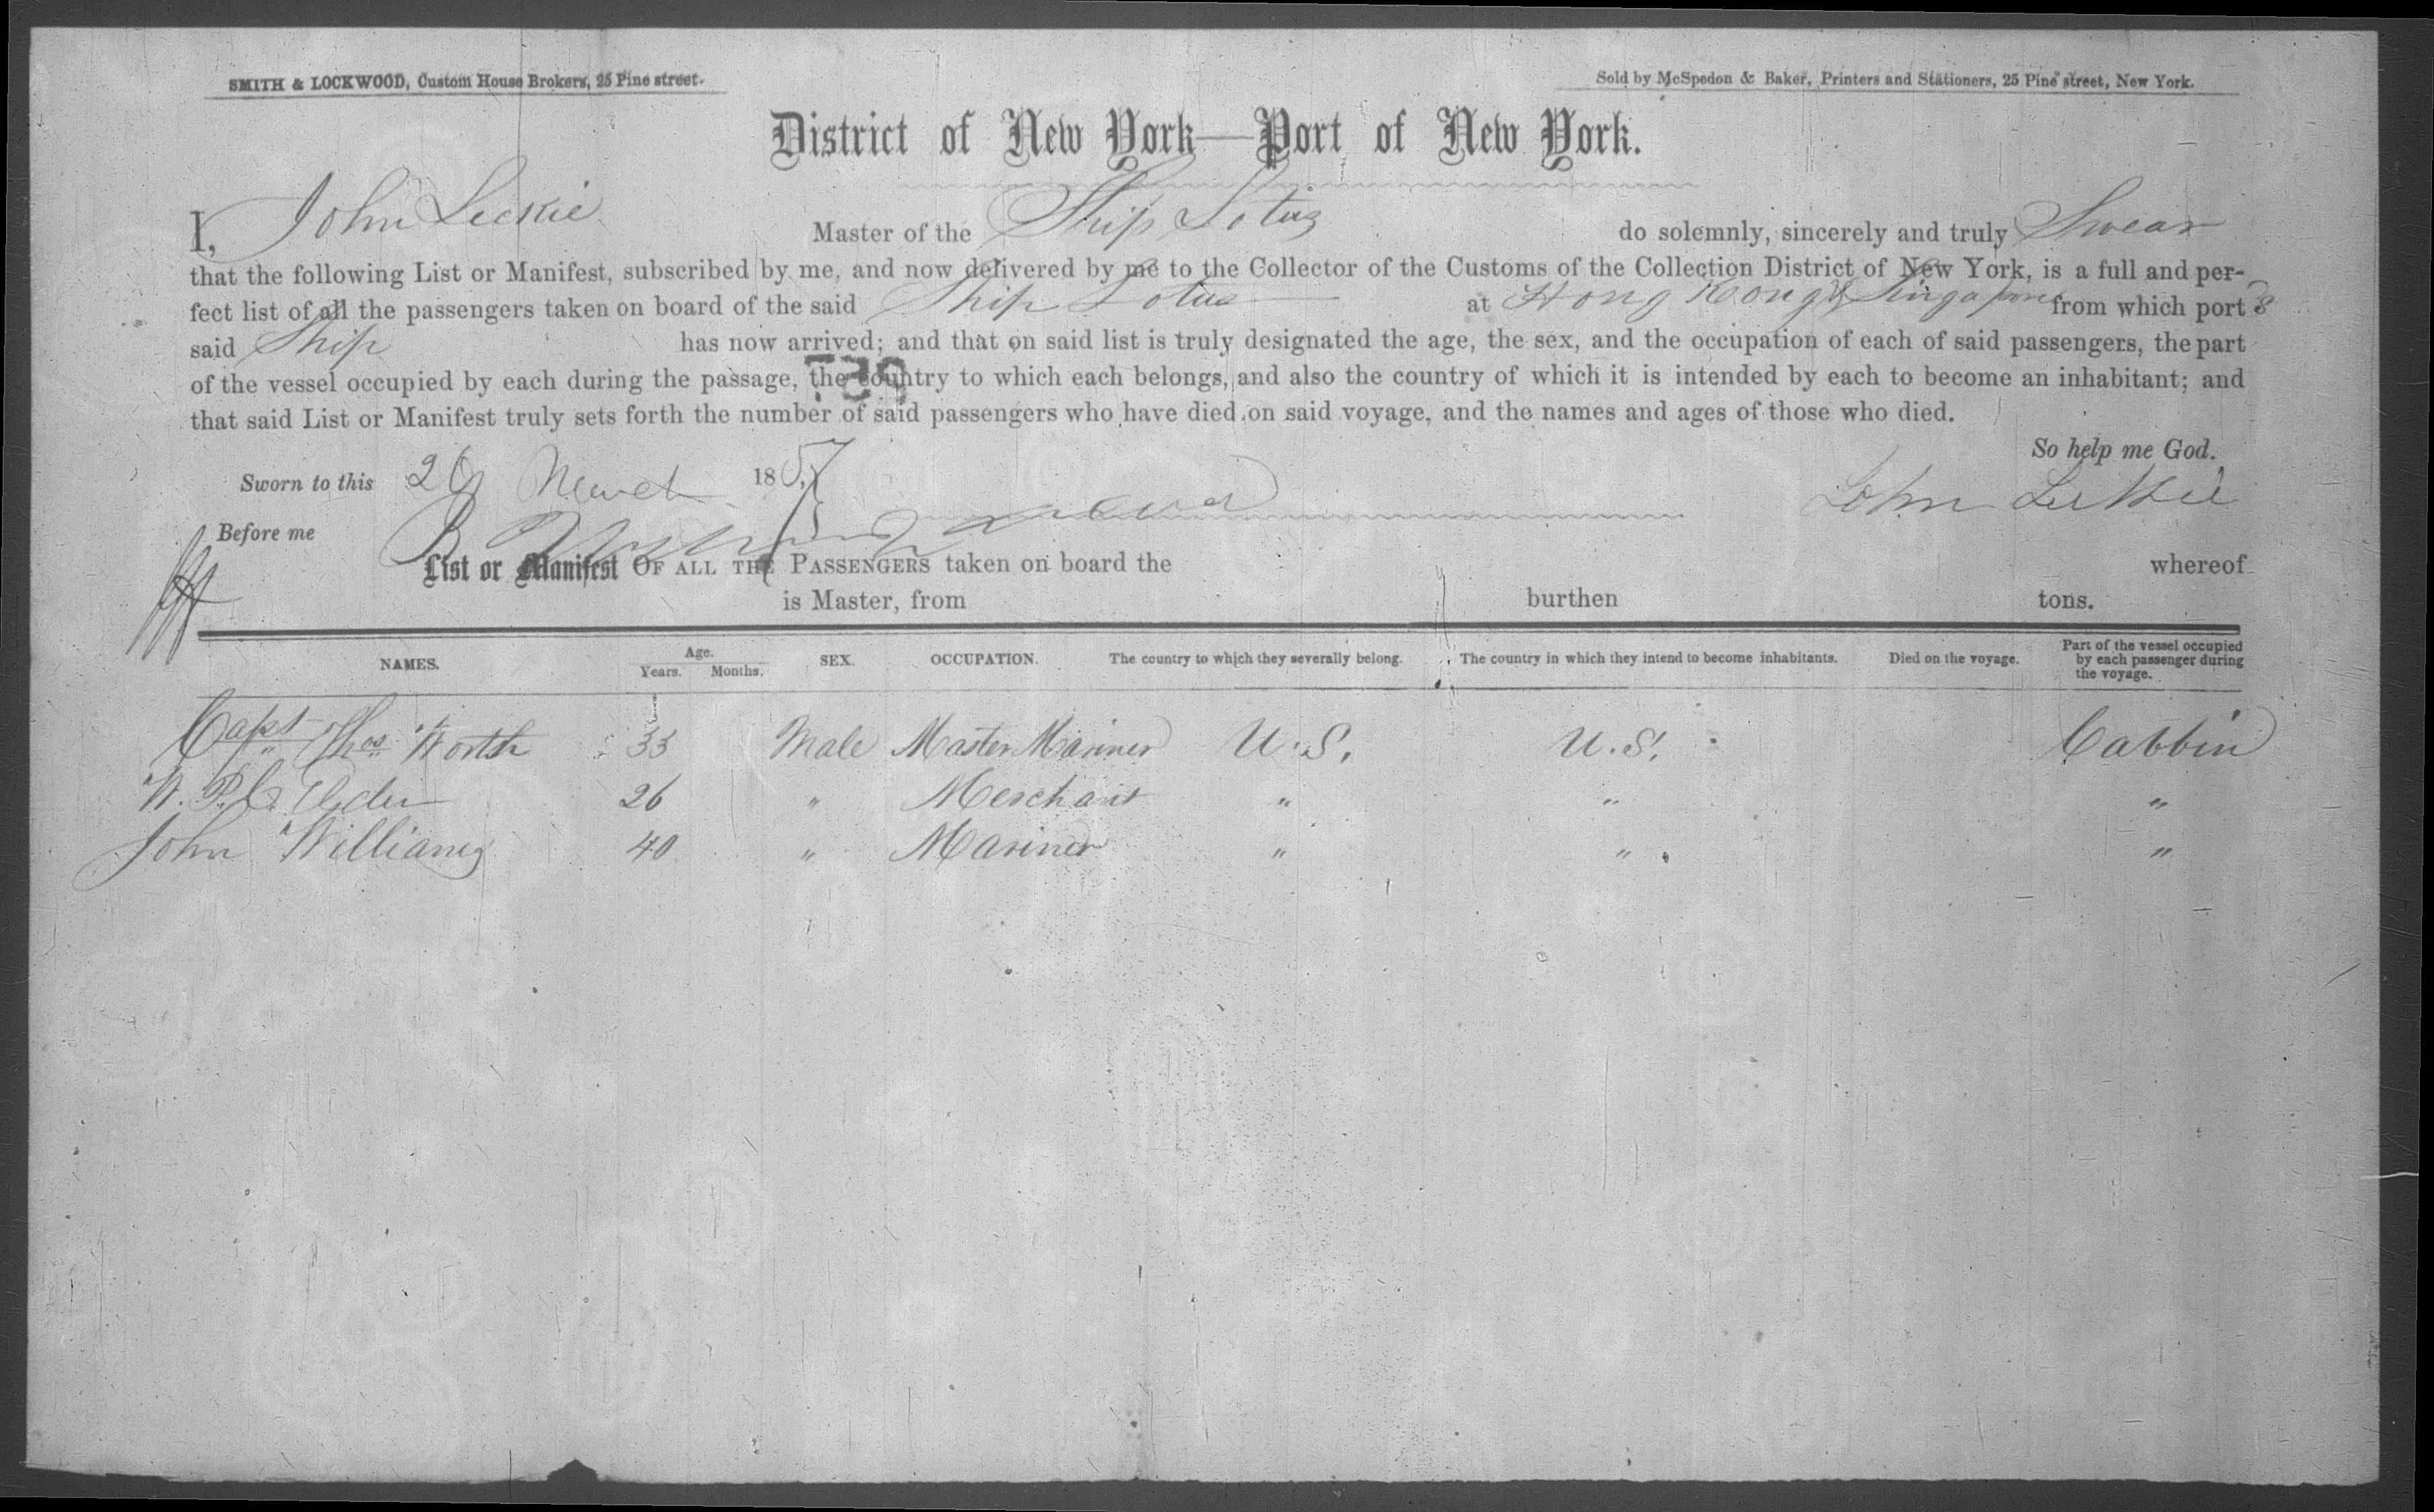 SMITH & LOCKWOOD, Custom House Brokers, 25 Pine street.
Sold by McSpedon & Baker, Printers and Stationers, 25 Pine street, New York.
District of New York—Port of New York.
I, John Leckie Master of the Ship Lotus do solemnly, sincerely and truly Swear
that the following List or Manifest, subscribed by me, and now delivered by me to the Collector of the Customs of the Collection District of New York, is a full and per-
fect list of all the passengers taken on board of the said Ship Lotus at Hong Kong & Singapore from which port s
said Ship has now arrived; and that on said list is truly designated the age, the sex, and the occupation of each of said passengers, the part
of the vessel occupied by each during the passage, the country to which each belongs, and also the country of which it is intended by each to become an inhabitant; and
that said List or Manifest truly sets forth the number of said passengers who have died on said voyage, and the names and ages of those who died.
So help me God.
Sworn to this 26 March 1857 John Leckie
Before me
List or Manifest OF ALL THE PASSENGERS taken on board the whereof
is Master, from burthen tons.
NAMES. Age. Years. Months. SEX. OCCUPATION. The country to which they severally belong. The country in which they intend to become inhabitants. Died on the voyage. Part of the vessel occupied by each passenger during the voyage.
Capt Thos Worth 33 Male Master Mariner U.S. U.S. Cabbin
W. P. C. 26 " Merchant " " "
John Williams 40 " Mariner " " "